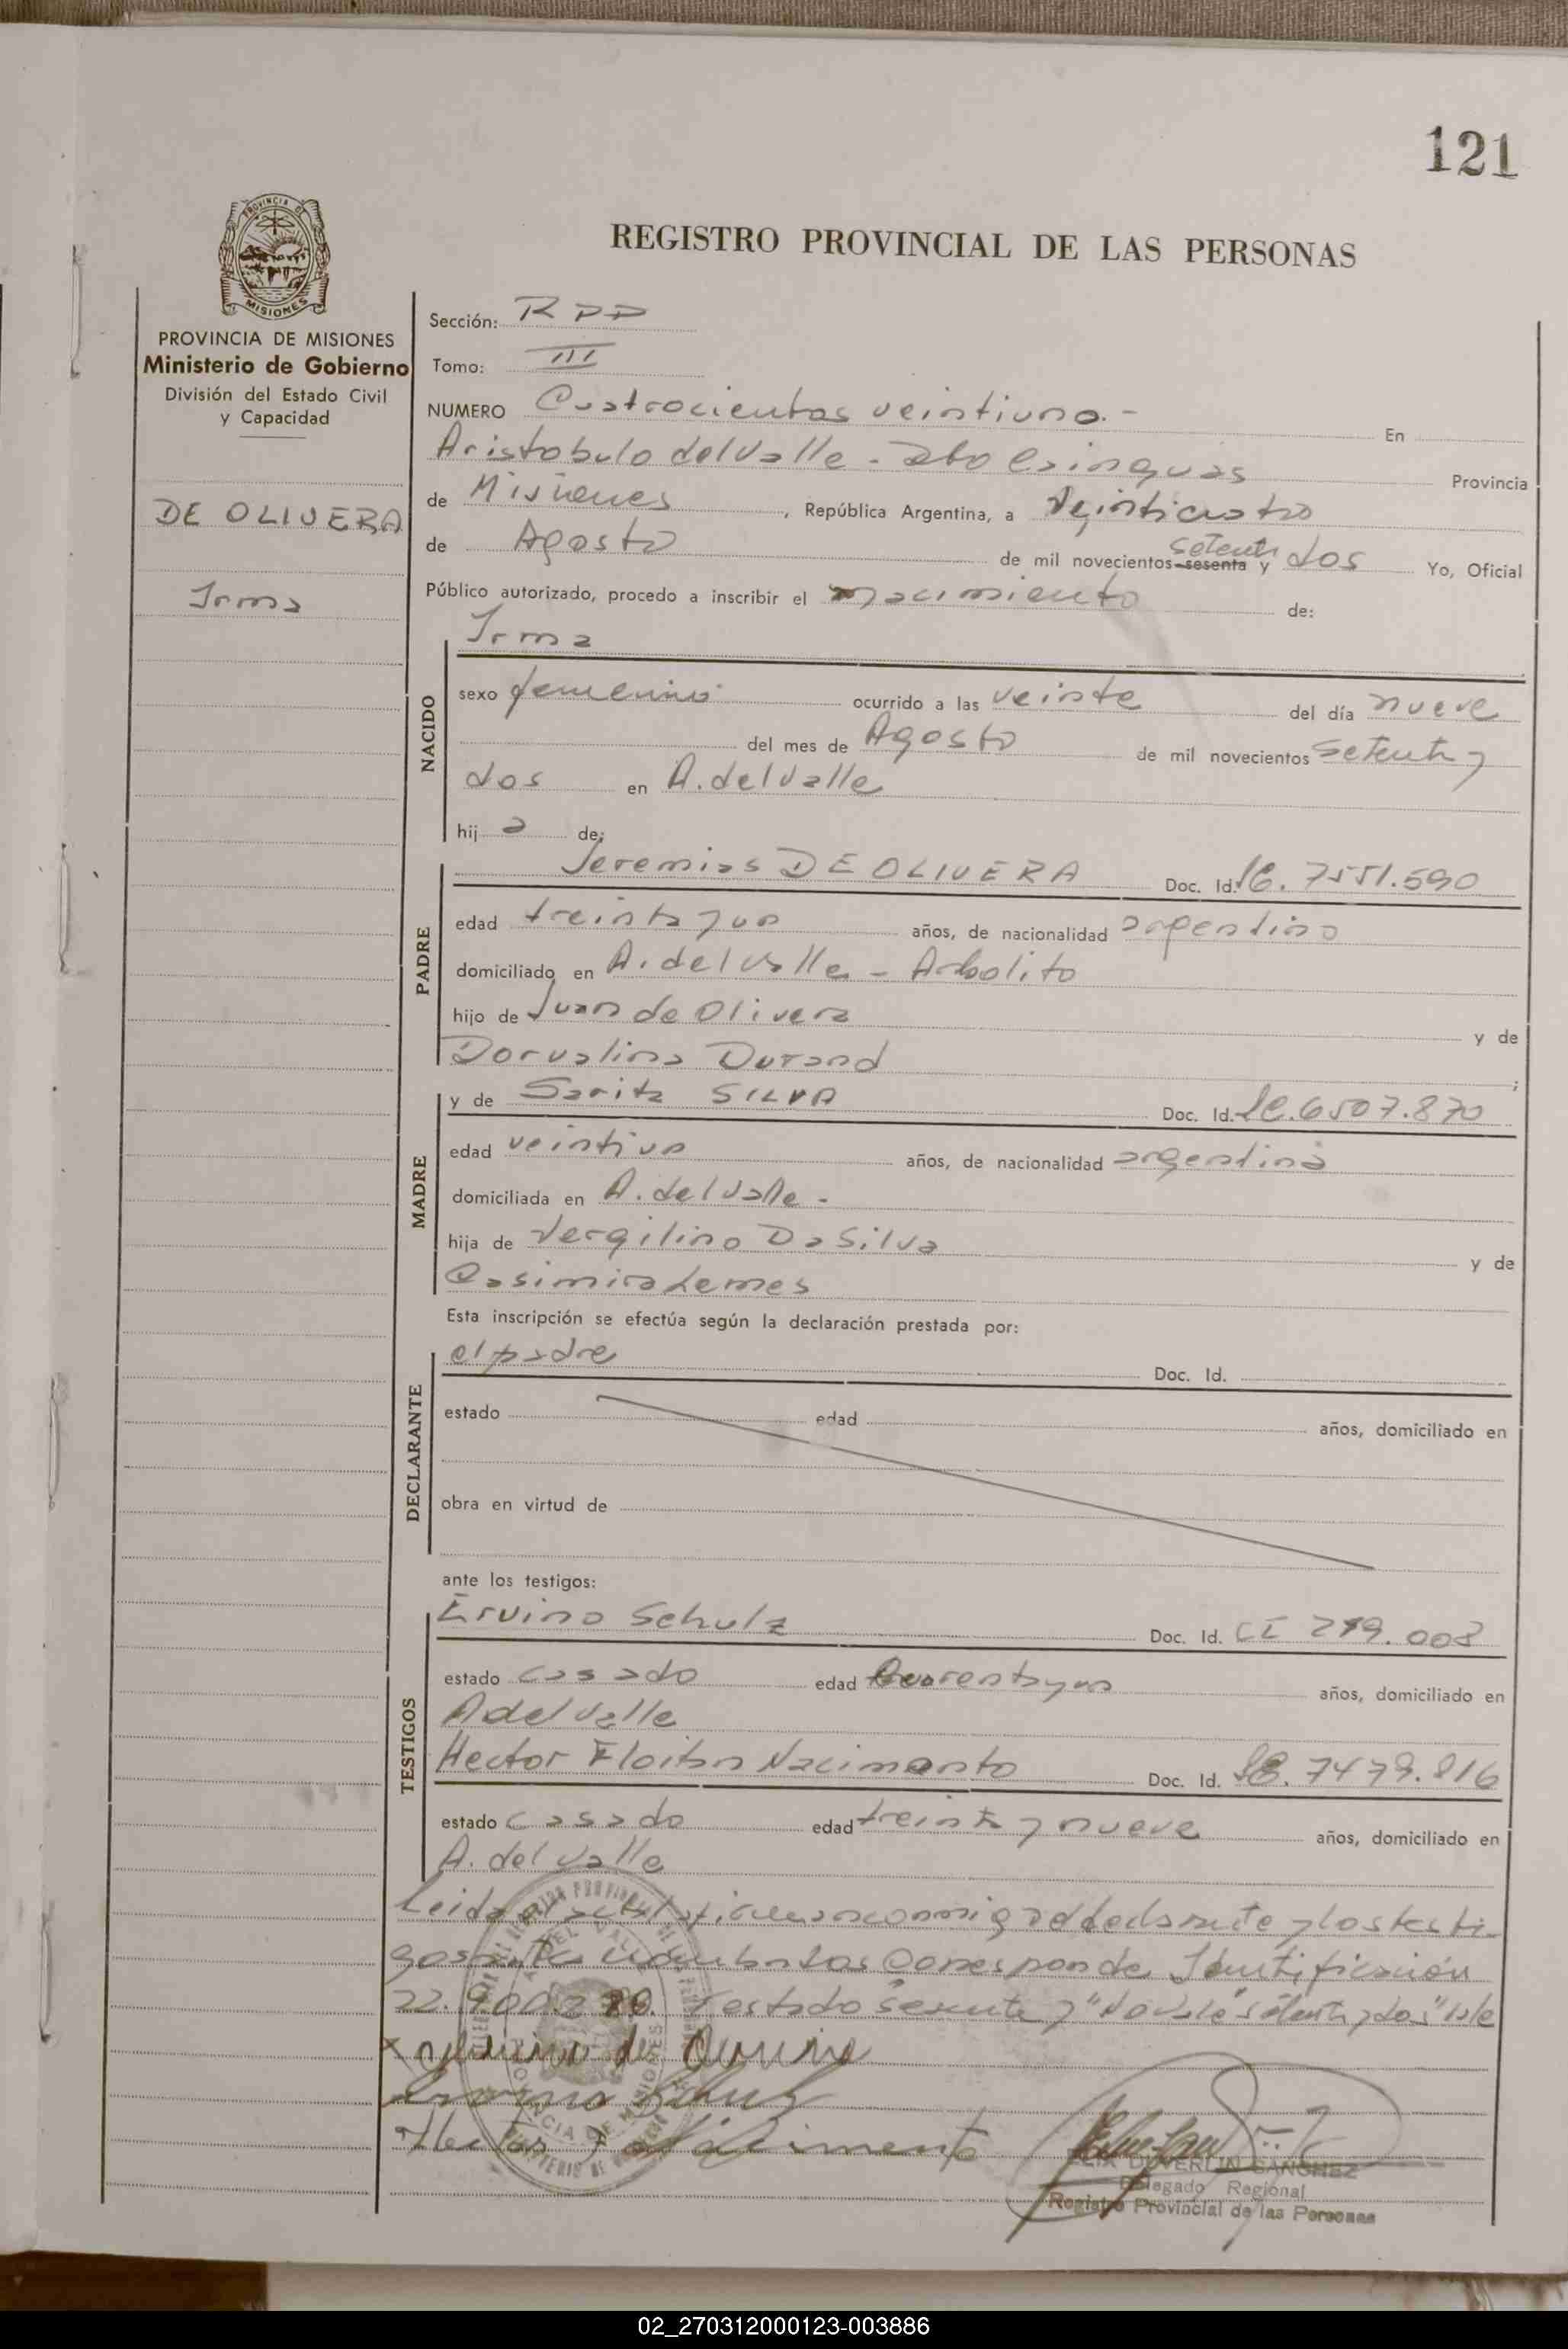 121
PROVINCIA DE
MISIONES
PROVINCIA DE MISIONES
Ministerio de Gobierno
División del Estado Civil
y Capacidad
DE OLIVERA
Irma
REGISTRO PROVINCIAL DE LAS PERSONAS
Sección: RPP
Tomo: III
NUMERO Cuatrocientos veintiuno.- En
Aristobulo del Valle - Dto Cainguas Provincia
de Misiones, República Argentina, a veinticuatro
de Agosto de mil novecientos sesenta y setenta dos Yo, Oficial
Público autorizado, procedo a inscribir el nacimiento de:
NACIDO
Irma
sexo femenino ocurrido a las veinte del día nueve
del mes de Agosto de mil novecientos setenta y
dos en A. del Valle
hij a de:
PADRE
Jeremias DE OLIVERA Doc. Id. 7551.590
edad treinta y un años, de nacionalidad argentino
domiciliado en A. del Valle - Arbolito
hijo de Juan de Olivera y de
Dorvalina Durand ;
MADRE
y de Sarita SILVA Doc. Id. LC. 6507.870
edad veintiun años, de nacionalidad argentina
domiciliada en A. del Valle -
hija de Vergilino Da Silva y de
Casimira Lemes
Esta inscripción se efectúa según la declaración prestada por:
DECLARANTE
el padre Doc. Id.
estado edad años, domiciliado en
obra en virtud de
ante los testigos:
TESTIGOS
Ervino Schulz Doc. Id. CI 279.008
estado casado edad cuarenta y un años, domiciliado en
A del Valle
Hector Floitan Nacimento Doc. Id. 7479.816
estado casado edad treinta y nueve años, domiciliado en
A. del Valle
Leida el acta la firman conmigo el declarante y los testi-
gos Corresponde Identificación
22. Testado "sesenta y" "setenta y dos" vale
Hector Nacimento
FELIX DUVERLIN SANCHEZ
Delegado Regional
Registro Provincial de las Personas
02_270312000123-003886